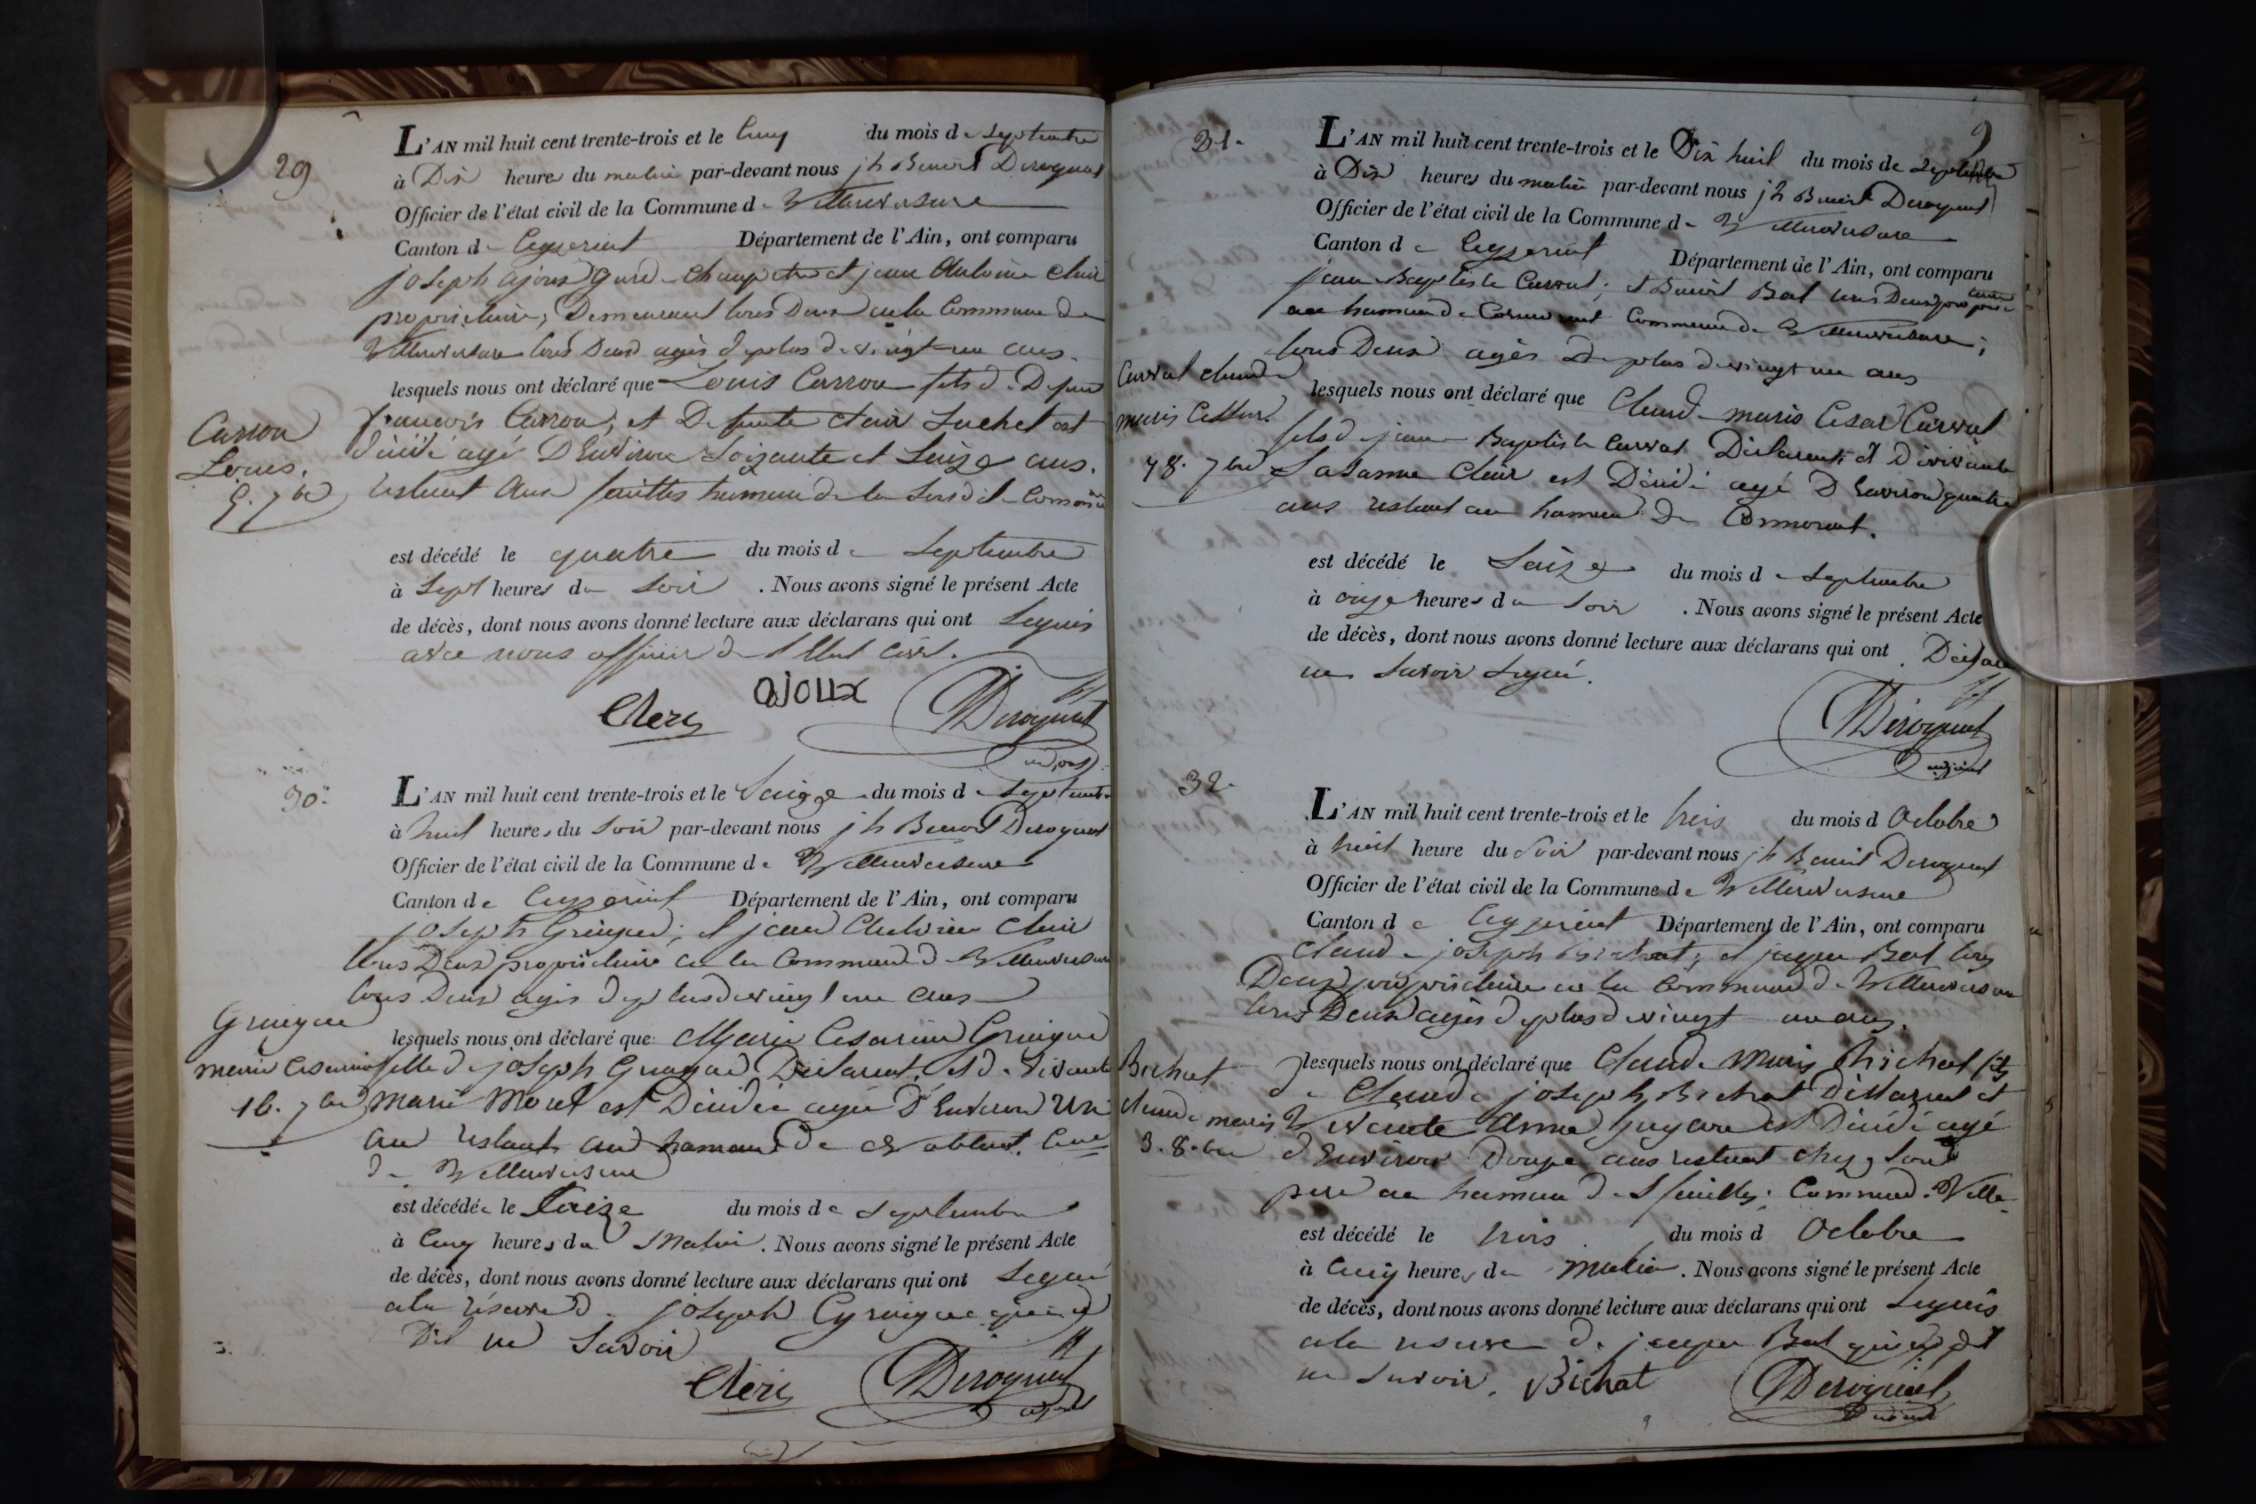 29
L'AN mil huit cent trente-trois et le Cinq du mois de Septembre
à Dix heures du matin par-devant nous jh Benoit Deroguat
Officier de l'état civil de la Commune de Villereversure
Canton de Ceyzeriat Département de l'Ain, ont comparu
joseph ajoux garde-champetre et jean Antoine Clair
propriétaire, Demeurant tous Deux a la Commune de
Villereversure tous Deux agés de plus de vingt un ans.
lesquels nous ont déclaré que Louis Carron fils de Defunt
Carron
Louis.
5. 7bre
françois Carron, et Defunte Clair Luchet est
Décédé agé D'Environ Soixante et Seize ans.
restant aux hameau de la Susdite Commune
est décédé le quatre du mois de Septembre
à Sept heures du Soir . Nous avons signé le présent Acte
de décès, dont nous avons donné lecture aux déclarans qui ont Signés
avec nous officier de l'Etat Civil.
Clerc ajoux Deroguat
adjoint
30.
L'AN mil huit cent trente-trois et le Seize du mois de Septembre
à huit heures du Soir par-devant nous jh Benoit Deroguat
Officier de l'état civil de la Commune de Villereversure
Canton de Ceyzeriat Département de l'Ain, ont comparu
joseph Gringue; et jean Antoine Clair
tous Deux propriétaire a la Commune de Villereversure
tous Deux agés de plus de vingt un ans
Gringue
marie Cesarine
16. 7bre
lesquels nous ont déclaré que Marie Cesarine Gringue
fille de joseph Gringue Déclarant, et de vivante
marie Morel est Décédée agée D'Environ Un
an restant au hameau de Cne
de Villereversure
est décédée le Seize du mois de Septembre
à Cinq heures du Matin . Nous avons signé le présent Acte
de décès, dont nous avons donné lecture aux déclarans qui ont Signé
a la réserve de joseph Gringue qui a
Dit ne Savoir
Clerc Deroguat
adjoint
9
31.
L'AN mil huit cent trente-trois et le Dix huit du mois de Septembre
à Dix heures du matin par-devant nous jh Benoit Deroguat
Officier de l'état civil de la Commune de Villereversure
Canton de Ceyzeriat Département de l'Ain, ont comparu
jean Baptiste Carrat; et Benoit Bal tous Deux
au hameau de Cormorant Commune de Villereversure;
tous Deux agés de plus de vingt un ans
Carrat Claude
marie Cesar.
18. 7bre
lesquels nous ont déclaré que Claude marie Cesar Carrat
fils de jean Baptiste Carrat Déclarant et De vivante
Susanne Clair est Décédé agé D'Environ quatre
ans restant au hameau de Cormorant.
est décédé le Seize du mois de Septembre
à onze heures du Soir . Nous avons signé le présent Acte
de décès, dont nous avons donné lecture aux déclarans qui ont Déclaré
ne Savoir Signé.
Deroguat
adjoint
32.
L'AN mil huit cent trente-trois et le trois du mois d Octobre
à huit heure du Soir par-devant nous jh Benoit Deroguat
Officier de l'état civil de la Commune de Villereversure
Canton de Ceyzeriat Département de l'Ain, ont comparu
Claude joseph Bichat; et Bal tous
Deux propriétaire a la Commune de Villereversure
tous Deux agés de plus de vingt un ans.
Bichat
Claude marie
3. 8.bre
lesquels nous ont déclaré que Claude Marie Bichat fils
de Claude joseph Bichat Déclarant et
Vivante Anne est Décédé agé
d'Environ Douze ans restant chez Son
pere au hameau de Commune de Ville
est décédé le trois du mois d Octobre
à Cinq heures du Matin . Nous avons signé le présent Acte
de décès, dont nous avons donné lecture aux déclarans qui ont Signés
a la réserve de Bal qui a dit
ne Savoir. Bichat Deroguat
adjoint